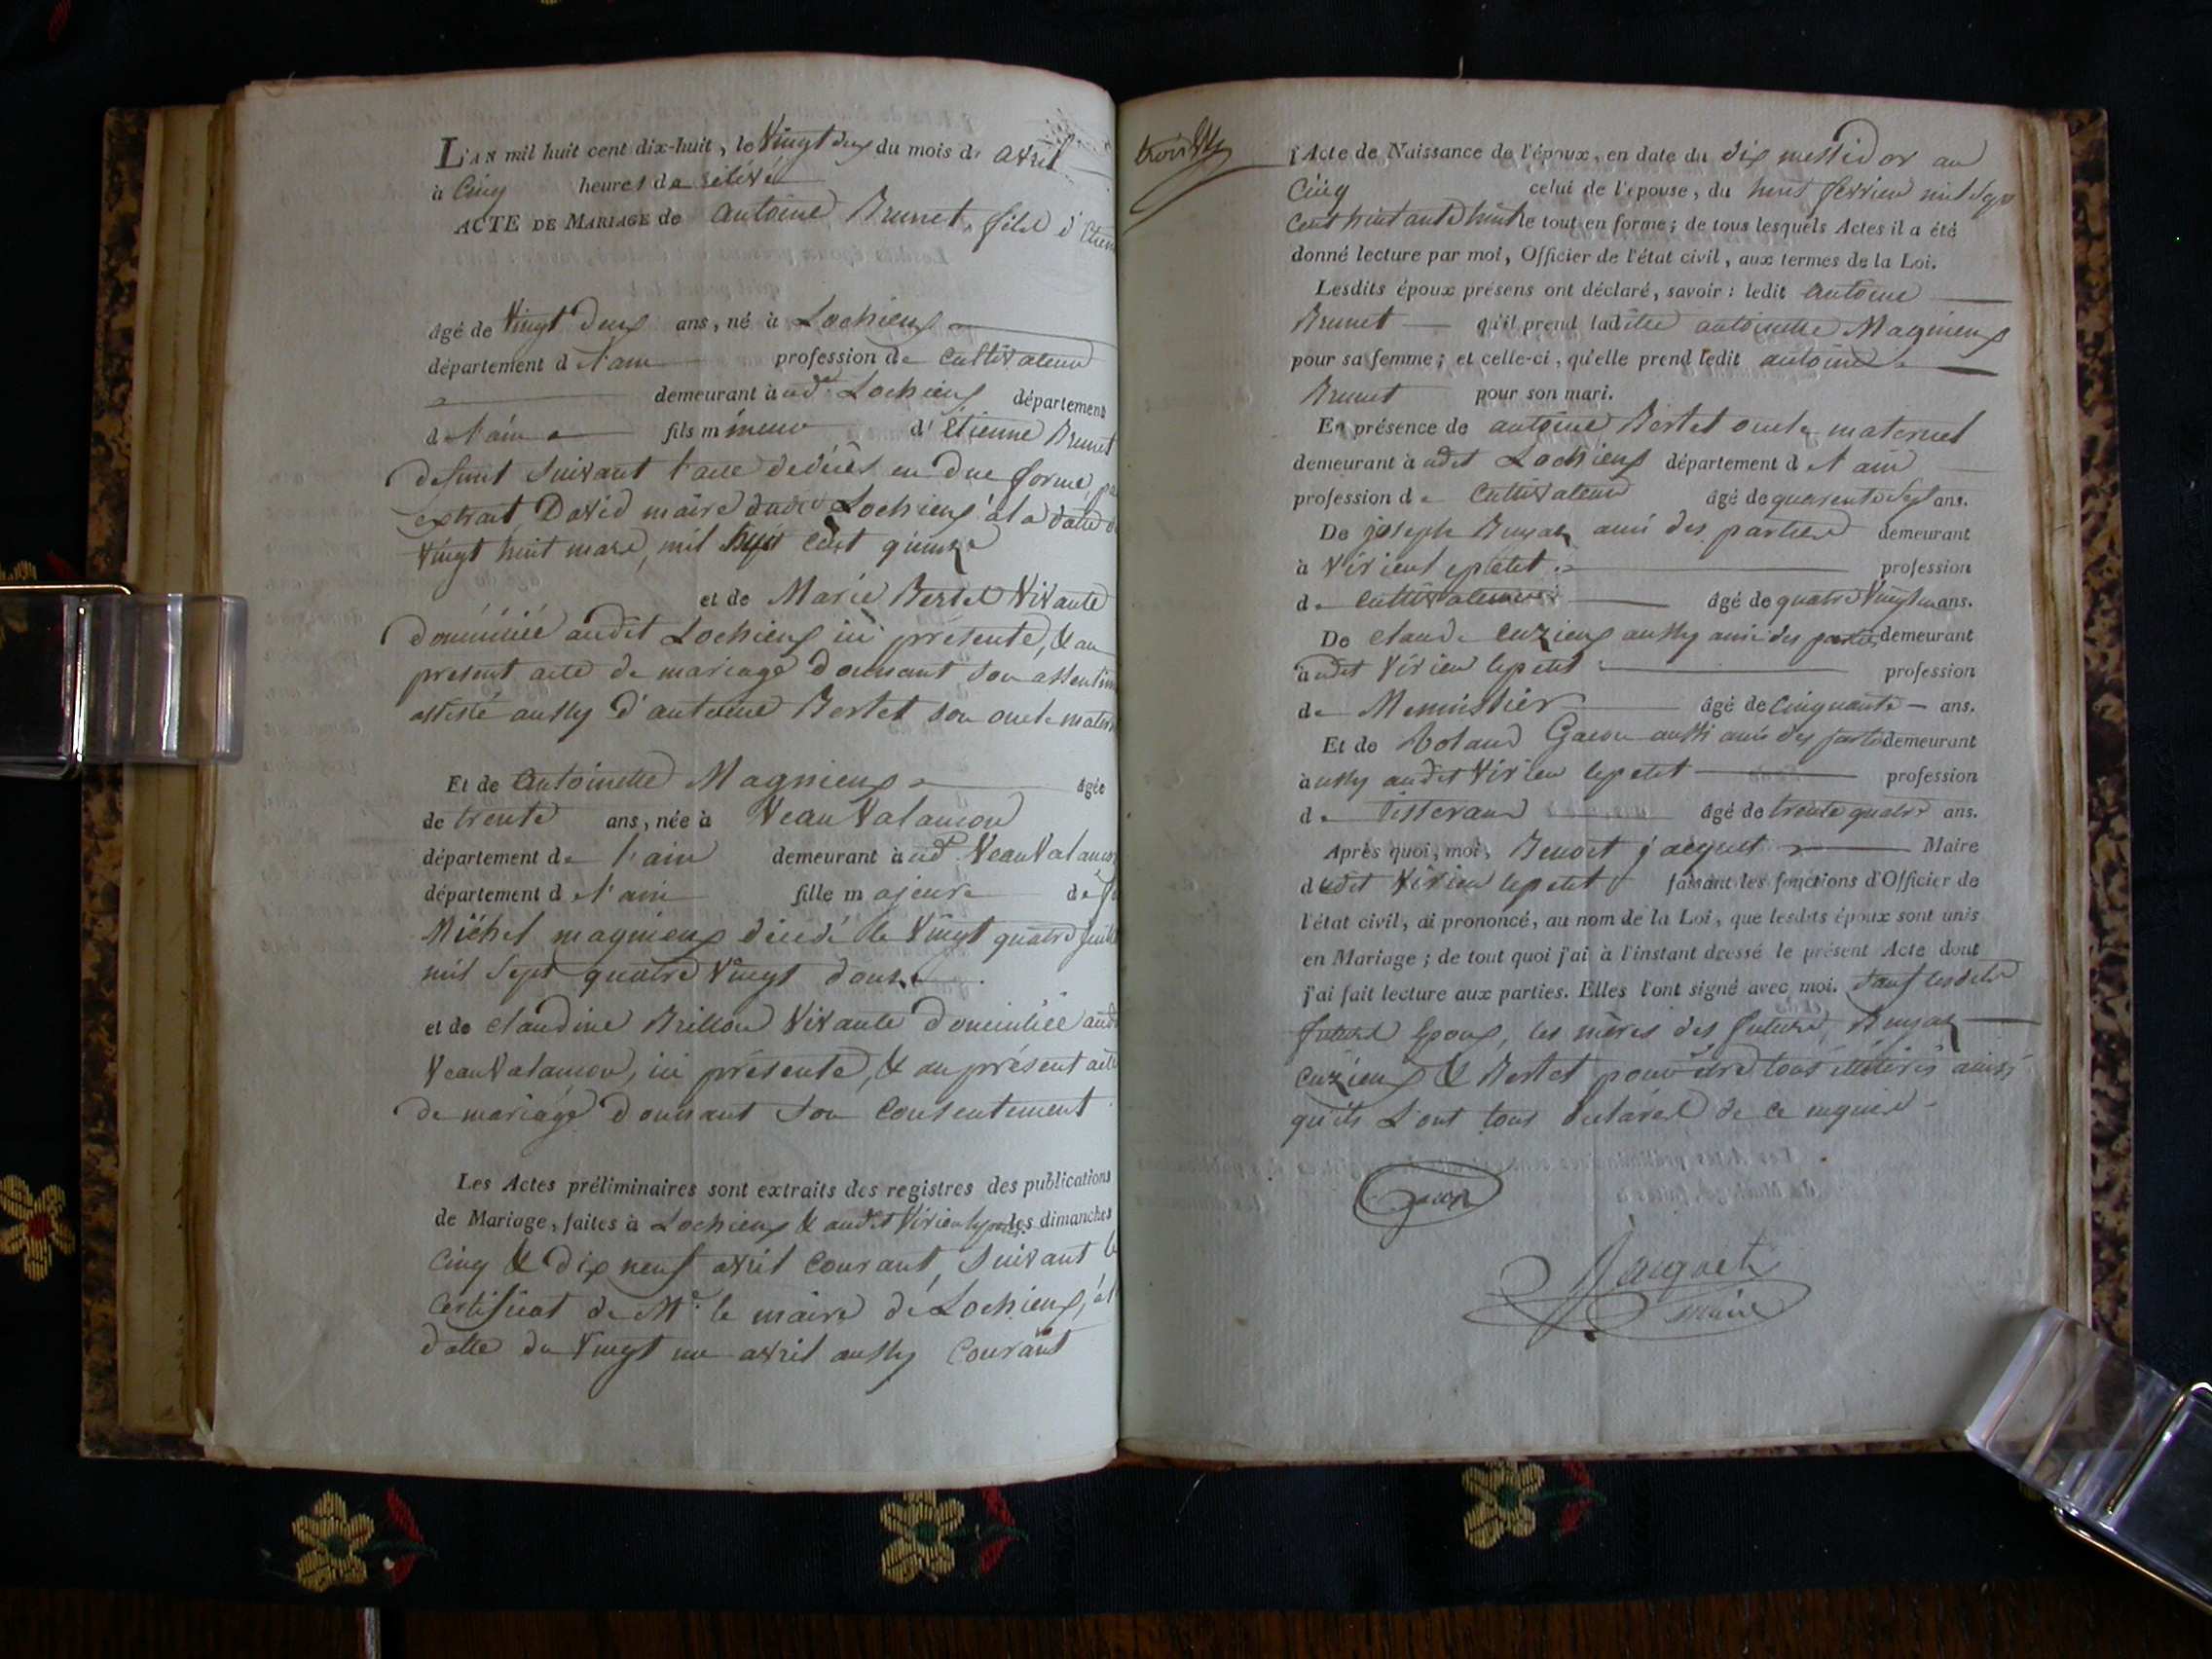 L'AN mil huit cent dix-huit, le vingt deux du mois de avril
à Cinq heures de relevé
ACTE DE MARIAGE de antoine Brunet, fils d'étienne
âgé de vingt deux ans, né à Lochieux
département de l'ain profession de cultivateur
demeurant à ud. Lochieux département
de l'ain fils mineur d'étienne Brunet
defunt suivant l'acte de décès en due forme, par
extrait David maire dudit Lochieux à la date du
vingt huit mars, mil huit cent quinze
et de Marie Bertet vivante
domiciliée audit Lochieux ici présente, & au
present acte de mariage donnant son assentim
assisté aussy d'antoine Bertet son oncle matern
Et de antoinette Magnieux âgée
de trente ans, née à Veauvalancon
département de l'ain demeurant à ud. Veauvalanco
département de l'ain fille majeure de
Michel magnieux décédé le vingt quatre juill
mil sept quatre vingt douze.
et de claudine Brillon vivante domiciliée aud
Veauvalancon, ici présente, & au présent acte
de mariage donnant son consentement
Les Actes préliminaires sont extraits des registres des publications
de Mariage, faites à Lochieux & audit Virieu lepetit les dimanches
cinq & dix neuf avril courant, suivant le
certificat de Mr. le maire de Lochieux, à la
datte du vingt un avril aussy courant
l'Acte de Naissance de l'époux, en date du dix messidor an
Cinq celui de l'épouse, du huit fevrier mil sept
cent huitante huit le tout en forme; de tous lesquels Actes il a été
donné lecture par moi, Officier de l'état civil, aux termes de la Loi.
Lesdits époux présens ont déclaré, savoir: ledit antoine
Brunet qu'il prend ladite antoinette Magnieux
pour sa femme; et celle-ci, qu'elle prend ledit antoine
Brunet pour son mari.
En présence de antoine Bertet oncle maternel
demeurant à udit Lochieux département de l'ain
profession de cultivateur âgé de quarente sept ans.
De joseph Buyat amis des parties demeurant
à Virieu lepetit profession
de cultivateur âgé de quatre vingt un ans.
De claude cuzieux aussy amis des parties demeurant
à udit Virieu lepetit profession
de Menuisier âgé de cinquante ans.
Et de Gacon aussi amis des parties demeurant
à ussy audit Virieu lepetit profession
de Tisserand âgé de trente quatre ans.
Après quoi, moi, Benoit jacquet Maire
dudit Virieu lepetit faisant les fonctions d'Officier de
l'état civil, ai prononcé, au nom de la Loi, que lesdits époux sont unis
en Mariage; de tout quoi j'ai à l'instant dressé le présent Acte dont
j'ai fait lecture aux parties. Elles l'ont signé avec moi. sauf lesdits
futurs Epoux, les mères des futurs, Buyat
cuzieux & Bertet pour être tous illitérés ainsi
qu'ils L'ont tous déclarés de ce requis
Gacon
Jacquet
maire